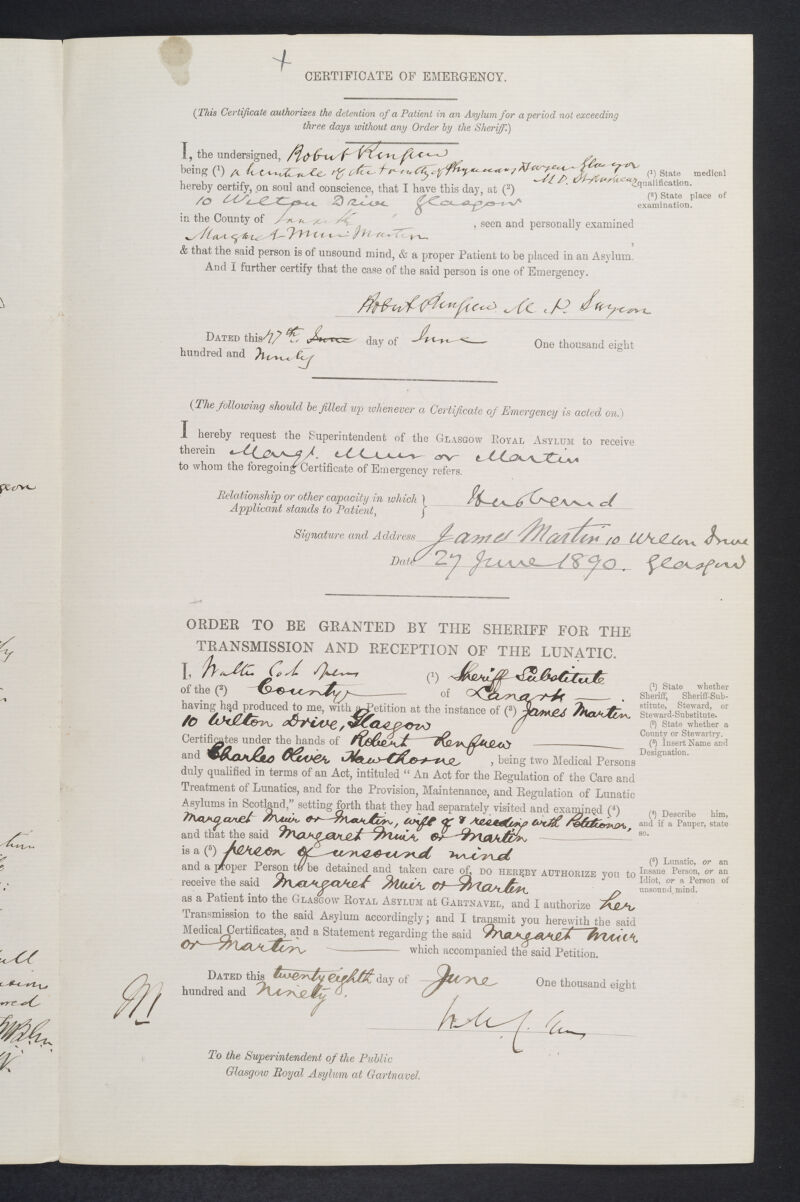 CERTIFICATE OF EMERGENCY.
(This Certificate authorizes the detention of a Patient in an Asylum for a period not exceeding
three days without any Order by the Sheriff.)
I, the undersigned, Robert Renfrew
being (¹) a Licentiate of the Faculty of Physicians & Surgeons Glasgow
M.D.
hereby certify, on soul and conscience, that I have this day, at (²)
10 Wilton Drive Glasgow
in the County of Lanark, seen and personally examined
Margaret Muir Martin
& that the said person is of unsound mind, & a proper Patient to be placed in an Asylum.
And I further certify that the case of the said person is one of Emergency.
(¹) State medical
qualification.
(²) State place of
examination.
Robert Renfrew M.D. Surgeon
DATED this 27th June day of June One thousand eight
hundred and Ninety
(The following should be filled up whenever a Certificate of Emergency is acted on.)
I hereby request the Superintendent of the GLASGOW ROYAL ASYLUM to receive
therein Margt. Muir or Martin
to whom the foregoing Certificate of Emergency refers.
Relationship or other capacity in which
Applicant stands to Patient, } Husband
Signature and Address James Martin 10 Wilton Drive
Date 27 June 1890. Glasgow
ORDER TO BE GRANTED BY THE SHERIFF FOR THE
TRANSMISSION AND RECEPTION OF THE LUNATIC.
I, Walter Cook Spens (¹) Sheriff Substitute
of the (²) County of Lanark
having had produced to me, with a Petition at the instance of (³) James Martin
10 Wilton Drive, Glasgow
Certificates under the hands of Robert Renfrew
and Charles Oliver Hawthorne, being two Medical Persons
duly qualified in terms of an Act, intituled "An Act for the Regulation of the Care and
Treatment of Lunatics, and for the Provision, Maintenance, and Regulation of Lunatic
Asylums in Scotland," setting forth that they had separately visited and examined (⁴)
Margaret Muir or Martin, wife of & residing with Petitioner,
and that the said Margaret Muir or Martin
is a (⁵) person of unsound mind
and a proper Person to be detained and taken care of, DO HEREBY AUTHORIZE you to
receive the said Margaret Muir or Martin
as a Patient into the GLASGOW ROYAL ASYLUM at GARTNAVEL, and I authorize her
Transmission to the said Asylum accordingly; and I transmit you herewith the said
Medical Certificates, and a Statement regarding the said Margaret Muir
or Martin which accompanied the said Petition.
(¹) State whether
Sheriff, Sheriff-Sub-
stitute, Steward, or
Steward-Substitute.
(²) State whether a
County or Stewartry.
(³) Insert Name and
Designation.
(⁴) Describe him,
and if a Pauper, state
so.
(⁵) Lunatic, or an
Insane Person, or an
Idiot, or a Person of
unsound mind.
DATED this twenty eighth day of June One thousand eight
hundred and Ninety.
To the Superintendent of the Public
Glasgow Royal Asylum at Gartnavel.